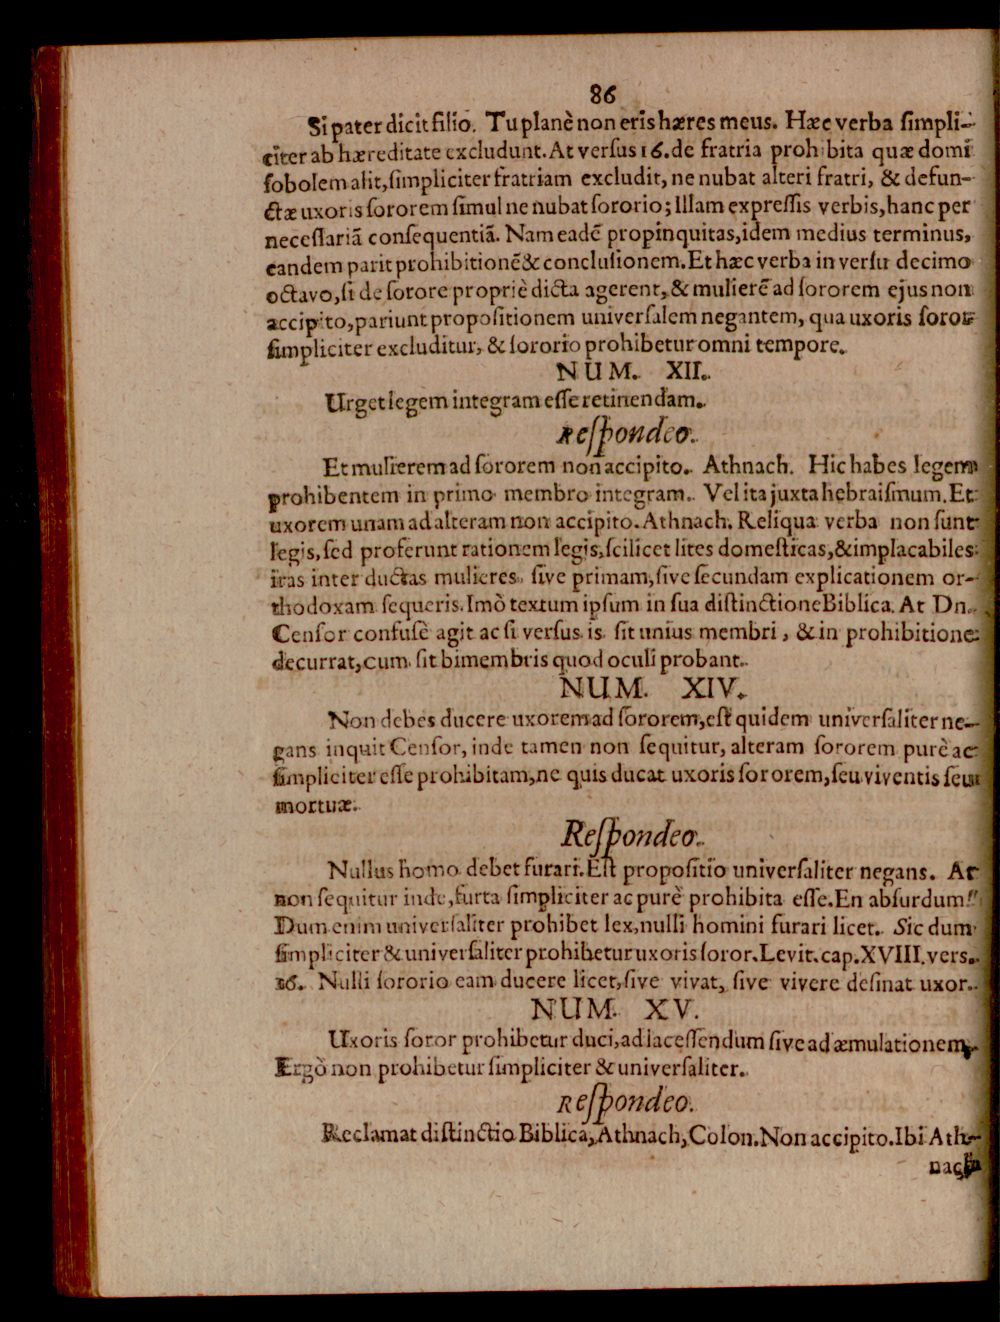 86
Si pater dicit filio. Tu planè non eris hæres meus. Hæc verba ſimpli-
citer ab hæreditate excludunt. At verſus 16. de fratria prohibita quæ domi
ſobolem alit, ſimpliciter fratriam excludit, ne nubat alteri fratri, & defun-
ctæ uxoris ſororem ſimul ne nubat ſororio; Illam expreſſis verbis, hanc per
neceſſariã conſequentiã. Nam eadẽ propinquitas, idem medius terminus,
eandem parit prohibitionẽ & concluſionem. Et hæc verba in verſu decimo
octavo, ſi de ſorore propriè dicta agerent, & mulierẽ ad ſororem ejus non
accipito, pariunt propoſitionem univerſalem negantem, qua uxoris ſoror
ſimpliciter excluditur, & ſororio prohibetur omni tempore.
NUM. XII.
Urget legem integram eſſe retinendam.
Reſpondeo.
Et mulierem ad ſororem non accipito. Athnach. Hic habes legem
prohibentem in primo membro integram. Vel ita juxta hebraiſmum. Et
uxorem unam ad alteram non accipito. Athnach. Reliqua verba non ſunt
legis, ſed proferunt rationem legis, ſcilicet lites domeſticas, & implacabiles
iras inter ductas mulieres, ſive primam, ſive ſecundam explicationem or-
thodoxam ſequeris. Imò textum ipſum in ſua diſtinctione Biblica. At Dn.
Cenſor confuſè agit ac ſi verſus is ſit unius membri, & in prohibitione
decurrat, cum ſit bimembris quod oculi probant.
NUM. XIV.
Non debes ducere uxorem ad ſororem, eſt quidem univerſaliter ne-
gans inquit Cenſor, inde tamen non ſequitur, alteram ſororem purè ac
ſimpliciter eſſe prohibitam, ne quis ducat uxoris ſororem, ſeu viventis ſeu
mortuæ.
Reſpondeo.
Nullus homo debet furari. Eſt propoſitio univerſaliter negans. At
non ſequitur inde, furta ſimpliciter ac purè prohibita eſſe. En abſurdum!
Dum enim univerſaliter prohibet lex, nulli homini furari licet. Sic dum
ſimpliciter & univerſaliter prohibetur uxoris ſoror. Levit. cap. XVIII. vers.
16. Nulli ſororio eam ducere licet, ſive vivat, ſive vivere deſinat uxor.
NUM. XV.
Uxoris ſoror prohibetur duci, ad laceſſendum ſive ad æmulationem,
Ergò non prohibetur ſimpliciter & univerſaliter.
Reſpondeo.
Reclamat diſtinctio Biblica, Athnach, Colon. Non accipito. Ibi Ath-
nach